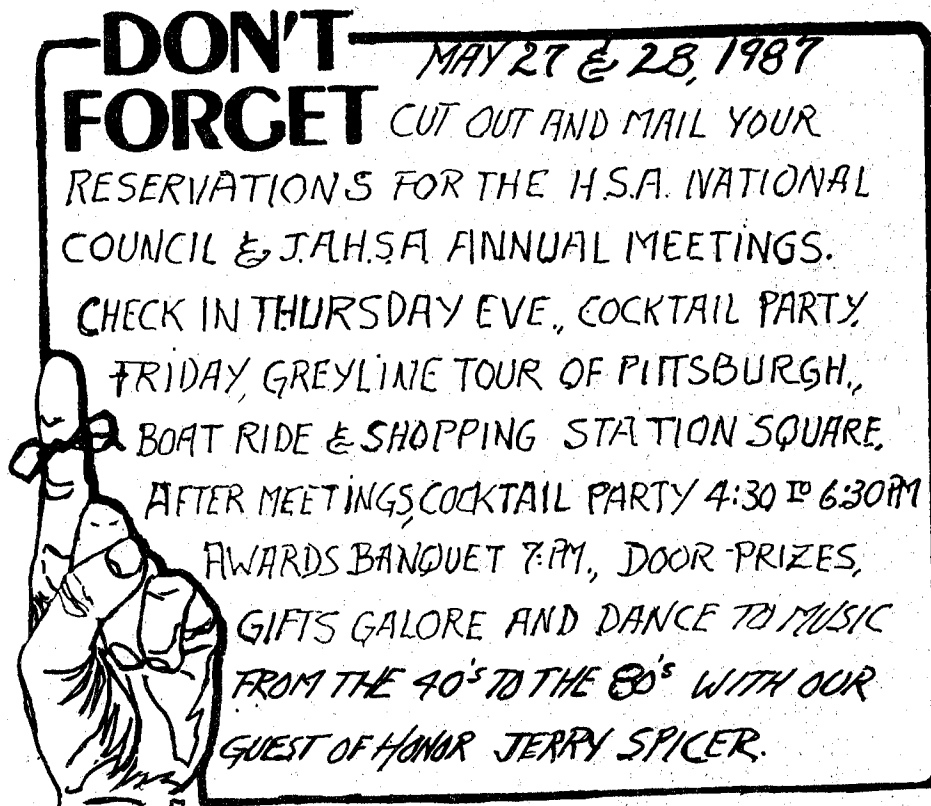 DON'T MAY 27 & 28, 1987
FORGET CUT OUT AND MAIL YOUR
RESERVATIONS FOR THE H.S.A. NATIONAL
COUNCIL & J.A.H.S.A ANNUAL MEETINGS.
CHECK IN THURSDAY EVE., COCKTAIL PARTY.
FRIDAY, GREYLINE TOUR OF PITTSBURGH.,
BOAT RIDE & SHOPPING STATION SQUARE.
AFTER MEETINGS, COCKTAIL PARTY 4:30 TO 6:30PM
AWARDS BANQUET 7:PM., DOOR PRIZES,
GIFTS GALORE AND DANCE TO MUSIC
FROM THE 40'S TO THE 80'S WITH OUR
GUEST OF HONOR JERRY SPICER.